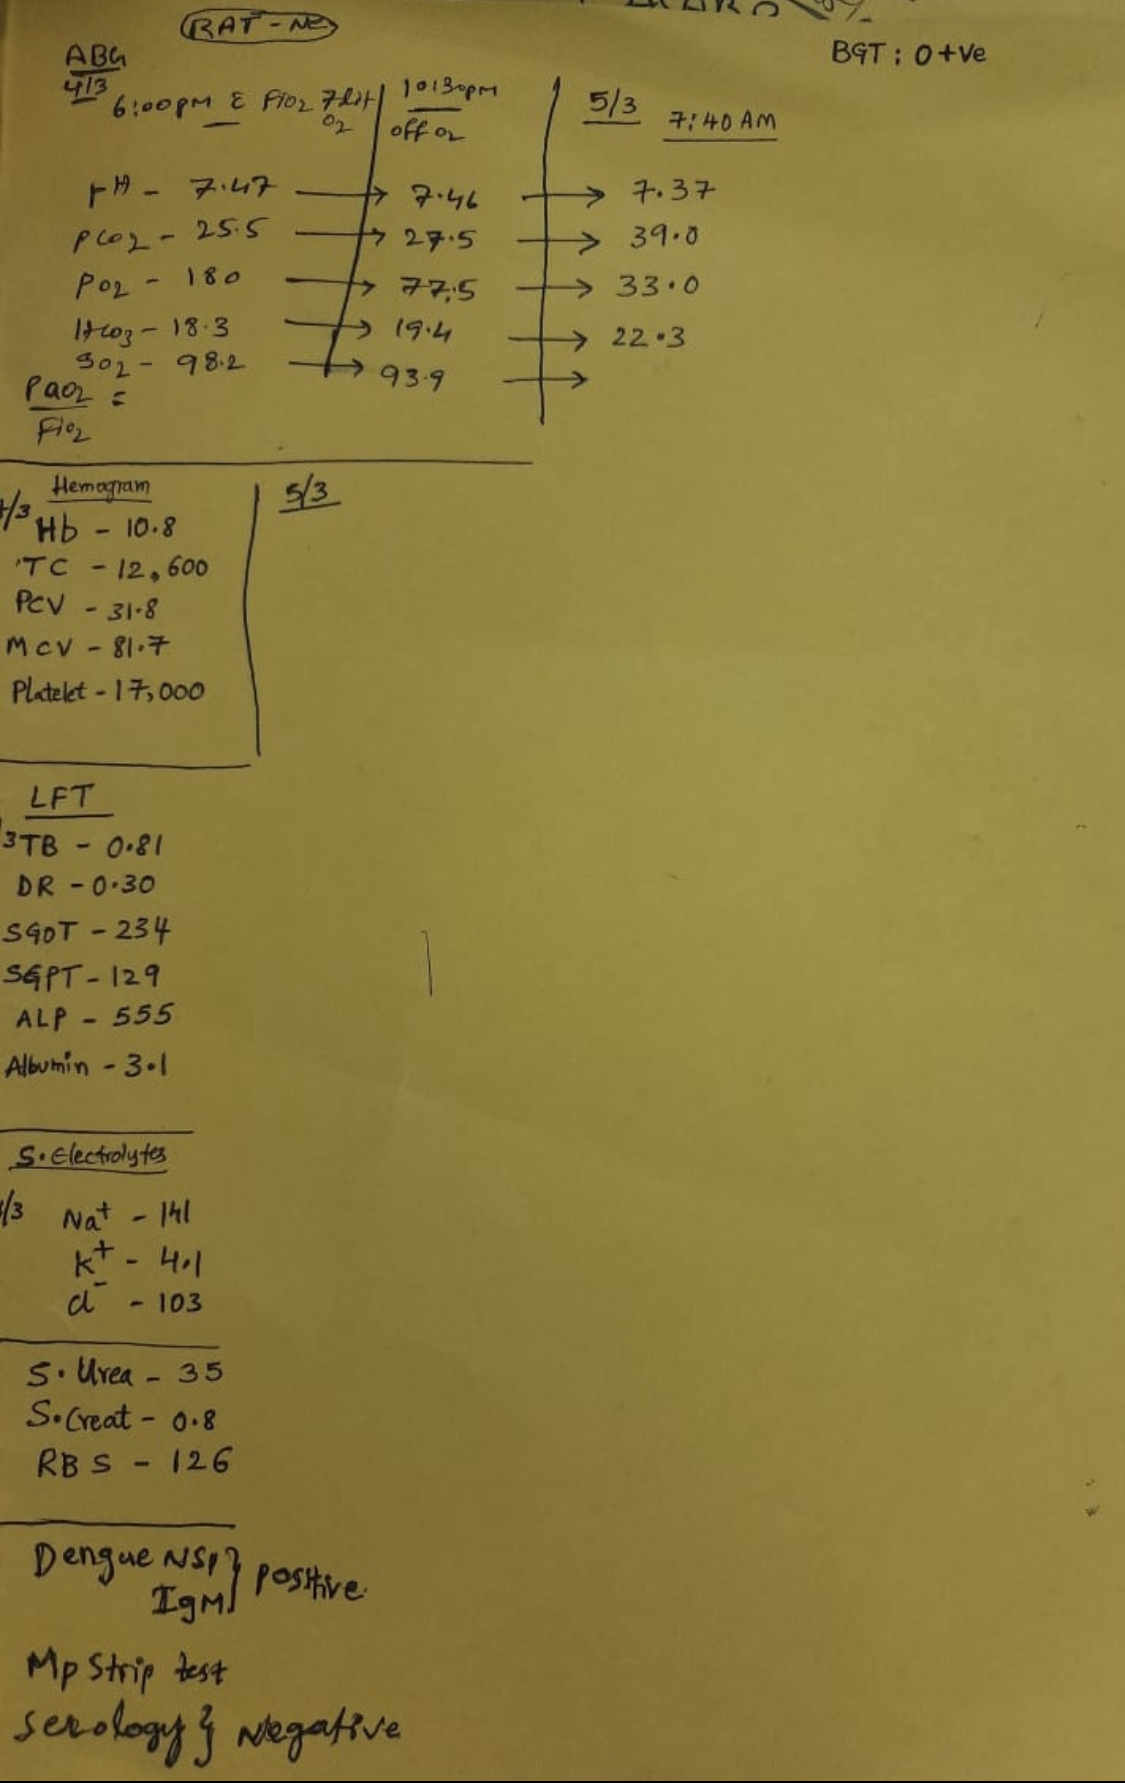 RAT - Ne
BGT : O +ve
ABG
4/3
6:00pm c̄ FiO2 7lit O2
10:30pm
off O2
5/3 7:40 AM
pH - 7.47 → 7.46 → 7.37
PCO2 - 25.5 → 27.5 → 39.0
PO2 - 180 → 77.5 → 33.0
HCO3 - 18.3 → 19.4 → 22.3
SO2 - 98.2 → 93.9 →
PaO2 =
FiO2
Hemogram
5/3
/3 Hb - 10.8
TC - 12,600
PCV - 31.8
MCV - 81.7
Platelet - 17,000
LFT
3 TB - 0.81
DR - 0.30
SGOT - 234
SGPT - 129
ALP - 555
Albumin - 3.1
S. Electrolytes
/3 Na+ - 141
K+ - 4.1
Cl- - 103
S. Urea - 35
S. Creat - 0.8
RBS - 126
Dengue NS1 } Positive
IgM
Mp Strip test
Serology } Negative